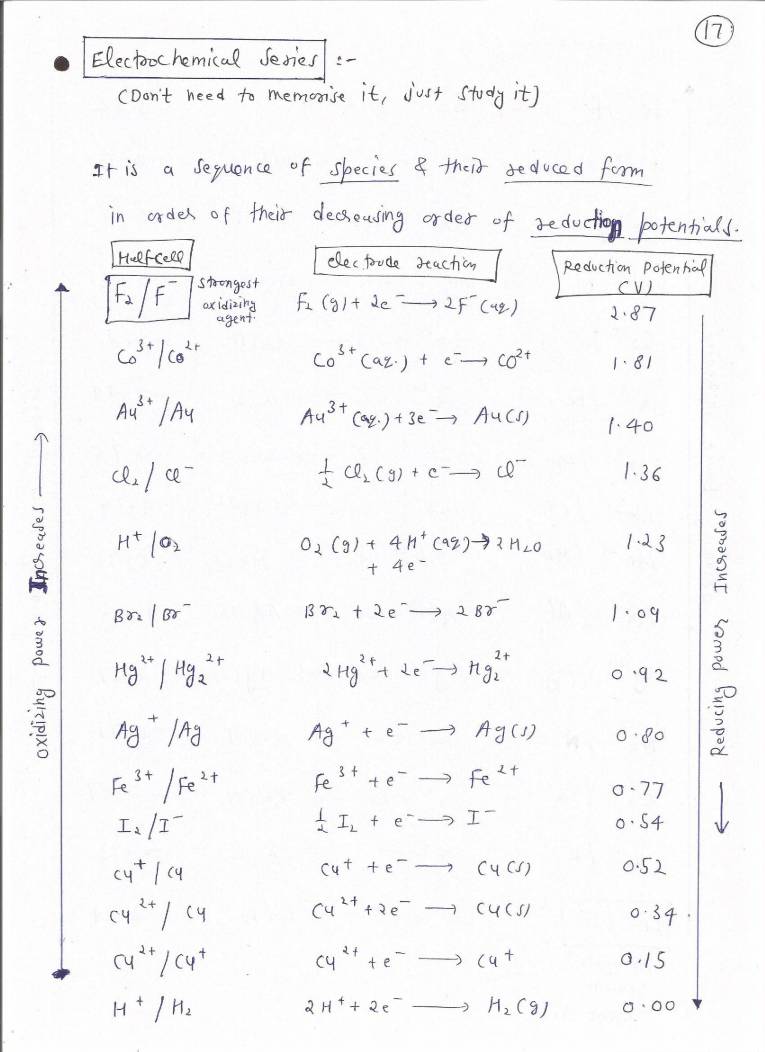 17
• Electrochemical Series :-
(Don't need to memorise it, just study it)
It is a sequence of species & their reduced form
in order of their decreasing order of reduction potentials.
Half-cell electrode reaction Reduction Potential (V)
F₂/F⁻ strongest oxidizing agent. F₂ (g) + 2e⁻ → 2F⁻ (aq.) 2.87
Co³⁺/Co²⁺ Co³⁺ (aq.) + e⁻ → Co²⁺ 1.81
Au³⁺/Au Au³⁺ (aq.) + 3e⁻ → Au(s) 1.40
Cl₂/Cl⁻ ½ Cl₂ (g) + e⁻ → Cl⁻ 1.36
H⁺/O₂ O₂ (g) + 4H⁺ (aq) → 2H₂O 1.23
+ 4e⁻
Br₂/Br⁻ Br₂ + 2e⁻ → 2Br⁻ 1.09
Hg²⁺/Hg₂²⁺ 2Hg²⁺ + 2e⁻ → Hg₂²⁺ 0.92
Ag⁺/Ag Ag⁺ + e⁻ → Ag(s) 0.80
Fe³⁺/Fe²⁺ Fe³⁺ + e⁻ → Fe²⁺ 0.77
I₂/I⁻ ½ I₂ + e⁻ → I⁻ 0.54
Cu⁺/Cu Cu⁺ + e⁻ → Cu(s) 0.52
Cu²⁺/Cu Cu²⁺ + 2e⁻ → Cu(s) 0.34.
Cu²⁺/Cu⁺ Cu²⁺ + e⁻ → Cu⁺ 0.15
H⁺/H₂ 2H⁺ + 2e⁻ → H₂ (g) 0.00
oxidizing power Increases →
Reducing power Increases →